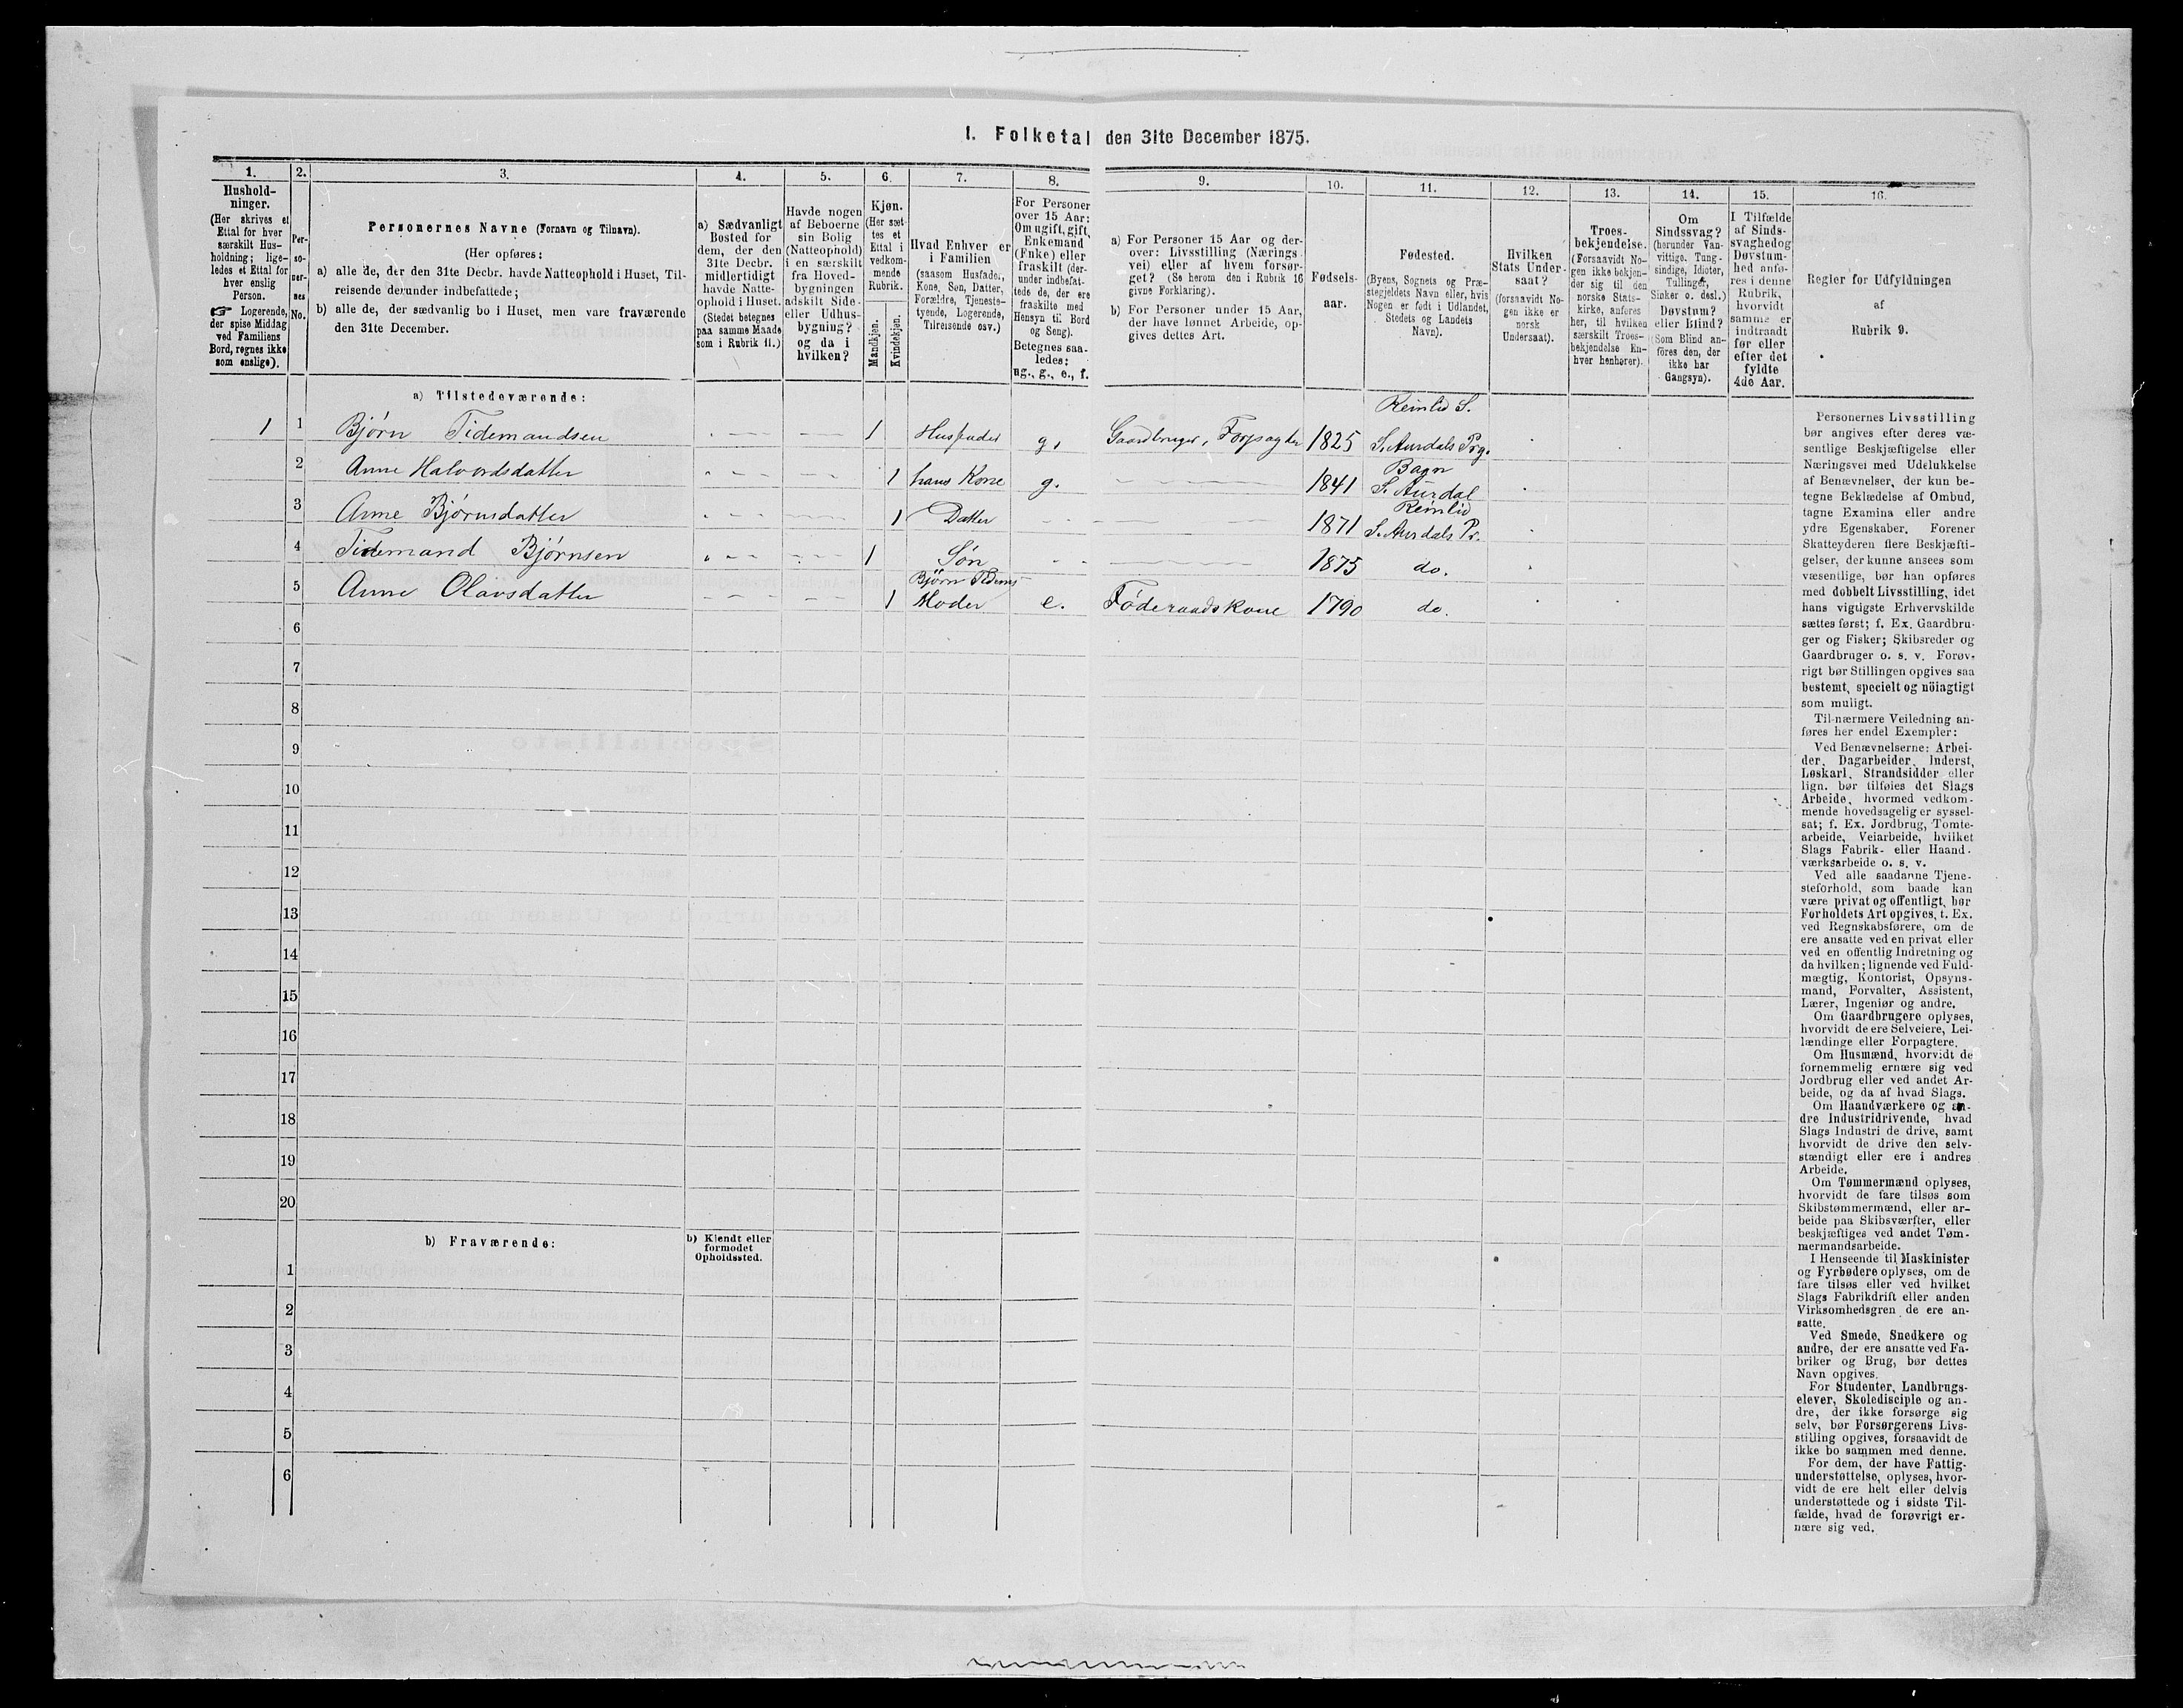 I. Folketal den 31te December 1875.
1.
Hushold-
ninger.
(Her skrives et
Ettal for hver
særskilt Hus-
holdning; lige-
ledes et Ettal for
hver enslig
Person.
☞ Logerende,
der spise Middag
ved Familiens
Bord, regnes ikke
som enslige).
2.
Per-
so-
ner-
nes
No.
3.
Personernes Navne (Fornavn og Tilnavn).
(Her opføres:
a) alle de, der den 31te Decbr. havde Natteophold i Huset, Til-
reisende derunder indbefattede;
b) alle de, der sædvanlig bo i Huset, men vare fraværende
den 31te December.
4.
a) Sædvanligt
Bosted for
dem, der den
31te Decbr.
midlertidigt
havde Natte-
ophold i Huset.
(Stedet betegnes
paa samme Maade
som i Rubrik 11.)
5.
Havde nogen
af Beboerne
sin Bolig
(Natteophold)
i en særskilt
fra Hoved-
bygningen
adskilt Side-
eller Udhus-
bygning?
og da i
hvilken?
6.
Kjøn.
(Her sæt-
tes et
Ettal i
vedkom-
mende
Rubrik.
Mandkjøn.
Kvindekjøn.
7.
Hvad Enhver er
i Familien
(saasom Husfader,
Kone, Søn, Datter,
Forældre, Tjeneste-
tyende, Logerende,
Tilreisende osv.)
8.
For Personer
over 15 Aar:
Om ugift, gift,
Enkemand
(Enke) eller
fraskilt (der-
under indbefat-
tede de, der ere
fraskilte med
Hensyn til Bord
og Seng).
Betegnes saa-
ledes:
ug., g., e., f.
9.
a) For Personer 15 Aar og der-
over: Livsstilling (Nærings-
vei) eller af hvem forsør-
get? (Se herom den i Rubrik 16
givne Forklaring).
b) For Personer under 15 Aar,
der have lønnet Arbeide, op-
gives dettes Art.
10.
Fødsels-
aar.
11.
Fødested.
(Byens, Sognets og Præ-
stegjeldets Navn eller, hvis
Nogen er født i Udlandet,
Stedets og Landets
Navn).
12.
Hvilken
Stats Under-
saat?
(forsaavidt No-
gen ikke er
norsk
Undersaat).
13.
Troes-
bekjendelse.
(Forsaavidt No-
gen ikke bekjen-
der sig til den
norske Stats-
kirke, anføres
her, til hvilken
særskilt Troes-
bekjendelse En-
hver henhører).
14.
Om
Sindssvag?
(herunder Van-
vittige, Tung-
sindige, Idioter,
Tullinger,
Sinker o. desl.)
Døvstum?
eller Blind?
(Som Blind an-
føres den, der
ikke har
Gangsyn).
15.
I Tilfælde
af Sinds-
svaghed og
Døvstum-
hed anfø-
res i denne
Rubrik,
hvorvidt
samme er
indtraadt
før eller
efter det
fyldte
4de Aar.
16.
Regler for Udfyldningen
af
Rubrik 9.
a) Tilstedeværende:
1 1 Bjørn Tidemandsen 1 Husfader g. Gaardbruger, Forpagter 1825 Reinlid S. S. Aurdals Prg.
2 Anne Halvordsdatter 1 hans Kone g. 1841 Bagn S. Aurdal
3 Anne Bjørnsdatter 1 Datter 1871 Reinlid S. Aurdals Pr.
4 Tidemand Bjørnsen 1 Søn 1875 do.
5 Anne Olavsdatter 1 Bjørn Tidems Moder e. Føderaadskone 1790 do.
6
7
8
9
10
11
12
13
14
15
16
17
18
19
20
b) Fraværende:
b) Kjendt eller
formodet
Opholdssted.
1
2
3
4
5
6
Personernes Livsstilling
bør angives efter deres væ-
sentlige Beskjæftigelse eller
Næringsvei med Udelukkelse
af Benævnelser, der kun be-
tegne Beklædelse af Ombud,
tagne Examina eller andre
ydre Egenskaber. Forener
Skatteyderen flere Beskjæfti-
gelser, der kunne ansees som
væsentlige, bør han opføres
med dobbelt Livsstilling, idet
hans vigtigste Erhvervskilde
sættes først; f. Ex. Gaardbru-
ger og Fisker; Skibsreder og
Gaardbruger o. s. v. Forøv-
rigt bør Stillingen opgives saa
bestemt, specielt og nöiagtigt
som muligt.
Til nærmere Veiledning an-
føres her endel Exempler:
Ved Benævnelserne: Arbei-
der, Dagarbeider, Inderst,
Løskarl, Strandsidder eller
lign. bør tilføies det Slags
Arbeide, hvormed vedkom-
mende hovedsagelig er syssel-
sat; f. Ex. Jordbrug, Tomte-
arbeide, Veiarbeide, hvilket
Slags Fabrik- eller Haand-
værksarbeide o. s. v.
Ved alle saadanne Tjene-
steforhold, som baade kan
være privat og offentligt, bør
Forholdets Art opgives, t. Ex.
ved Regnskabsførere, om de
ere ansatte ved en privat eller
ved en offentlig Indretning og
da hvilken; lignende ved Fuld-
mægtig, Kontorist, Opsyns-
mand, Forvalter, Assistent,
Lærer, Ingeniør og andre.
Om Gaardbrugere oplyses,
hvorvidt de ere Selveiere, Lei-
lændinge eller Forpagtere.
Om Husmænd, hvorvidt de
fornemmelig ernære sig ved
Jordbrug eller ved andet Ar-
beide, og da af hvad Slags.
Om Haandværkere og an-
dre Industridrivende, hvad
Slags Industri de drive, samt
hvorvidt de drive den selv-
stændigt eller ere i andres
Arbeide.
Om Tømmermænd oplyses,
hvorvidt de fare tilsøs som
Skibstømmermænd, eller ar-
beide paa Skibsværfter, eller
beskjæftiges ved andet Tøm-
mermandsarbeide.
I Henseende til Maskinister
og Fyrbødere oplyses, om de
fare tilsøs eller ved hvilket
Slags Fabrikdrift eller anden
Virksomhedsgren de ere an-
satte.
Ved Smede, Snedkere og
andre, der ere ansatte ved Fa-
briker og Brug, bør dettes
Navn opgives.
For Studenter, Landbrugs-
elever, Skoledisciple og an-
dre, der ikke forsørge sig
selv, bør Forsørgerens Livs-
stilling opgives, forsaavidt de
ikke bo sammen med denne.
For dem, der have Fattig-
understøttelse, oplyses, hvor-
vidt de ere helt eller delvis
understøttede og i sidste Til-
fælde, hvad de forøvrigt er-
nære sig ved.